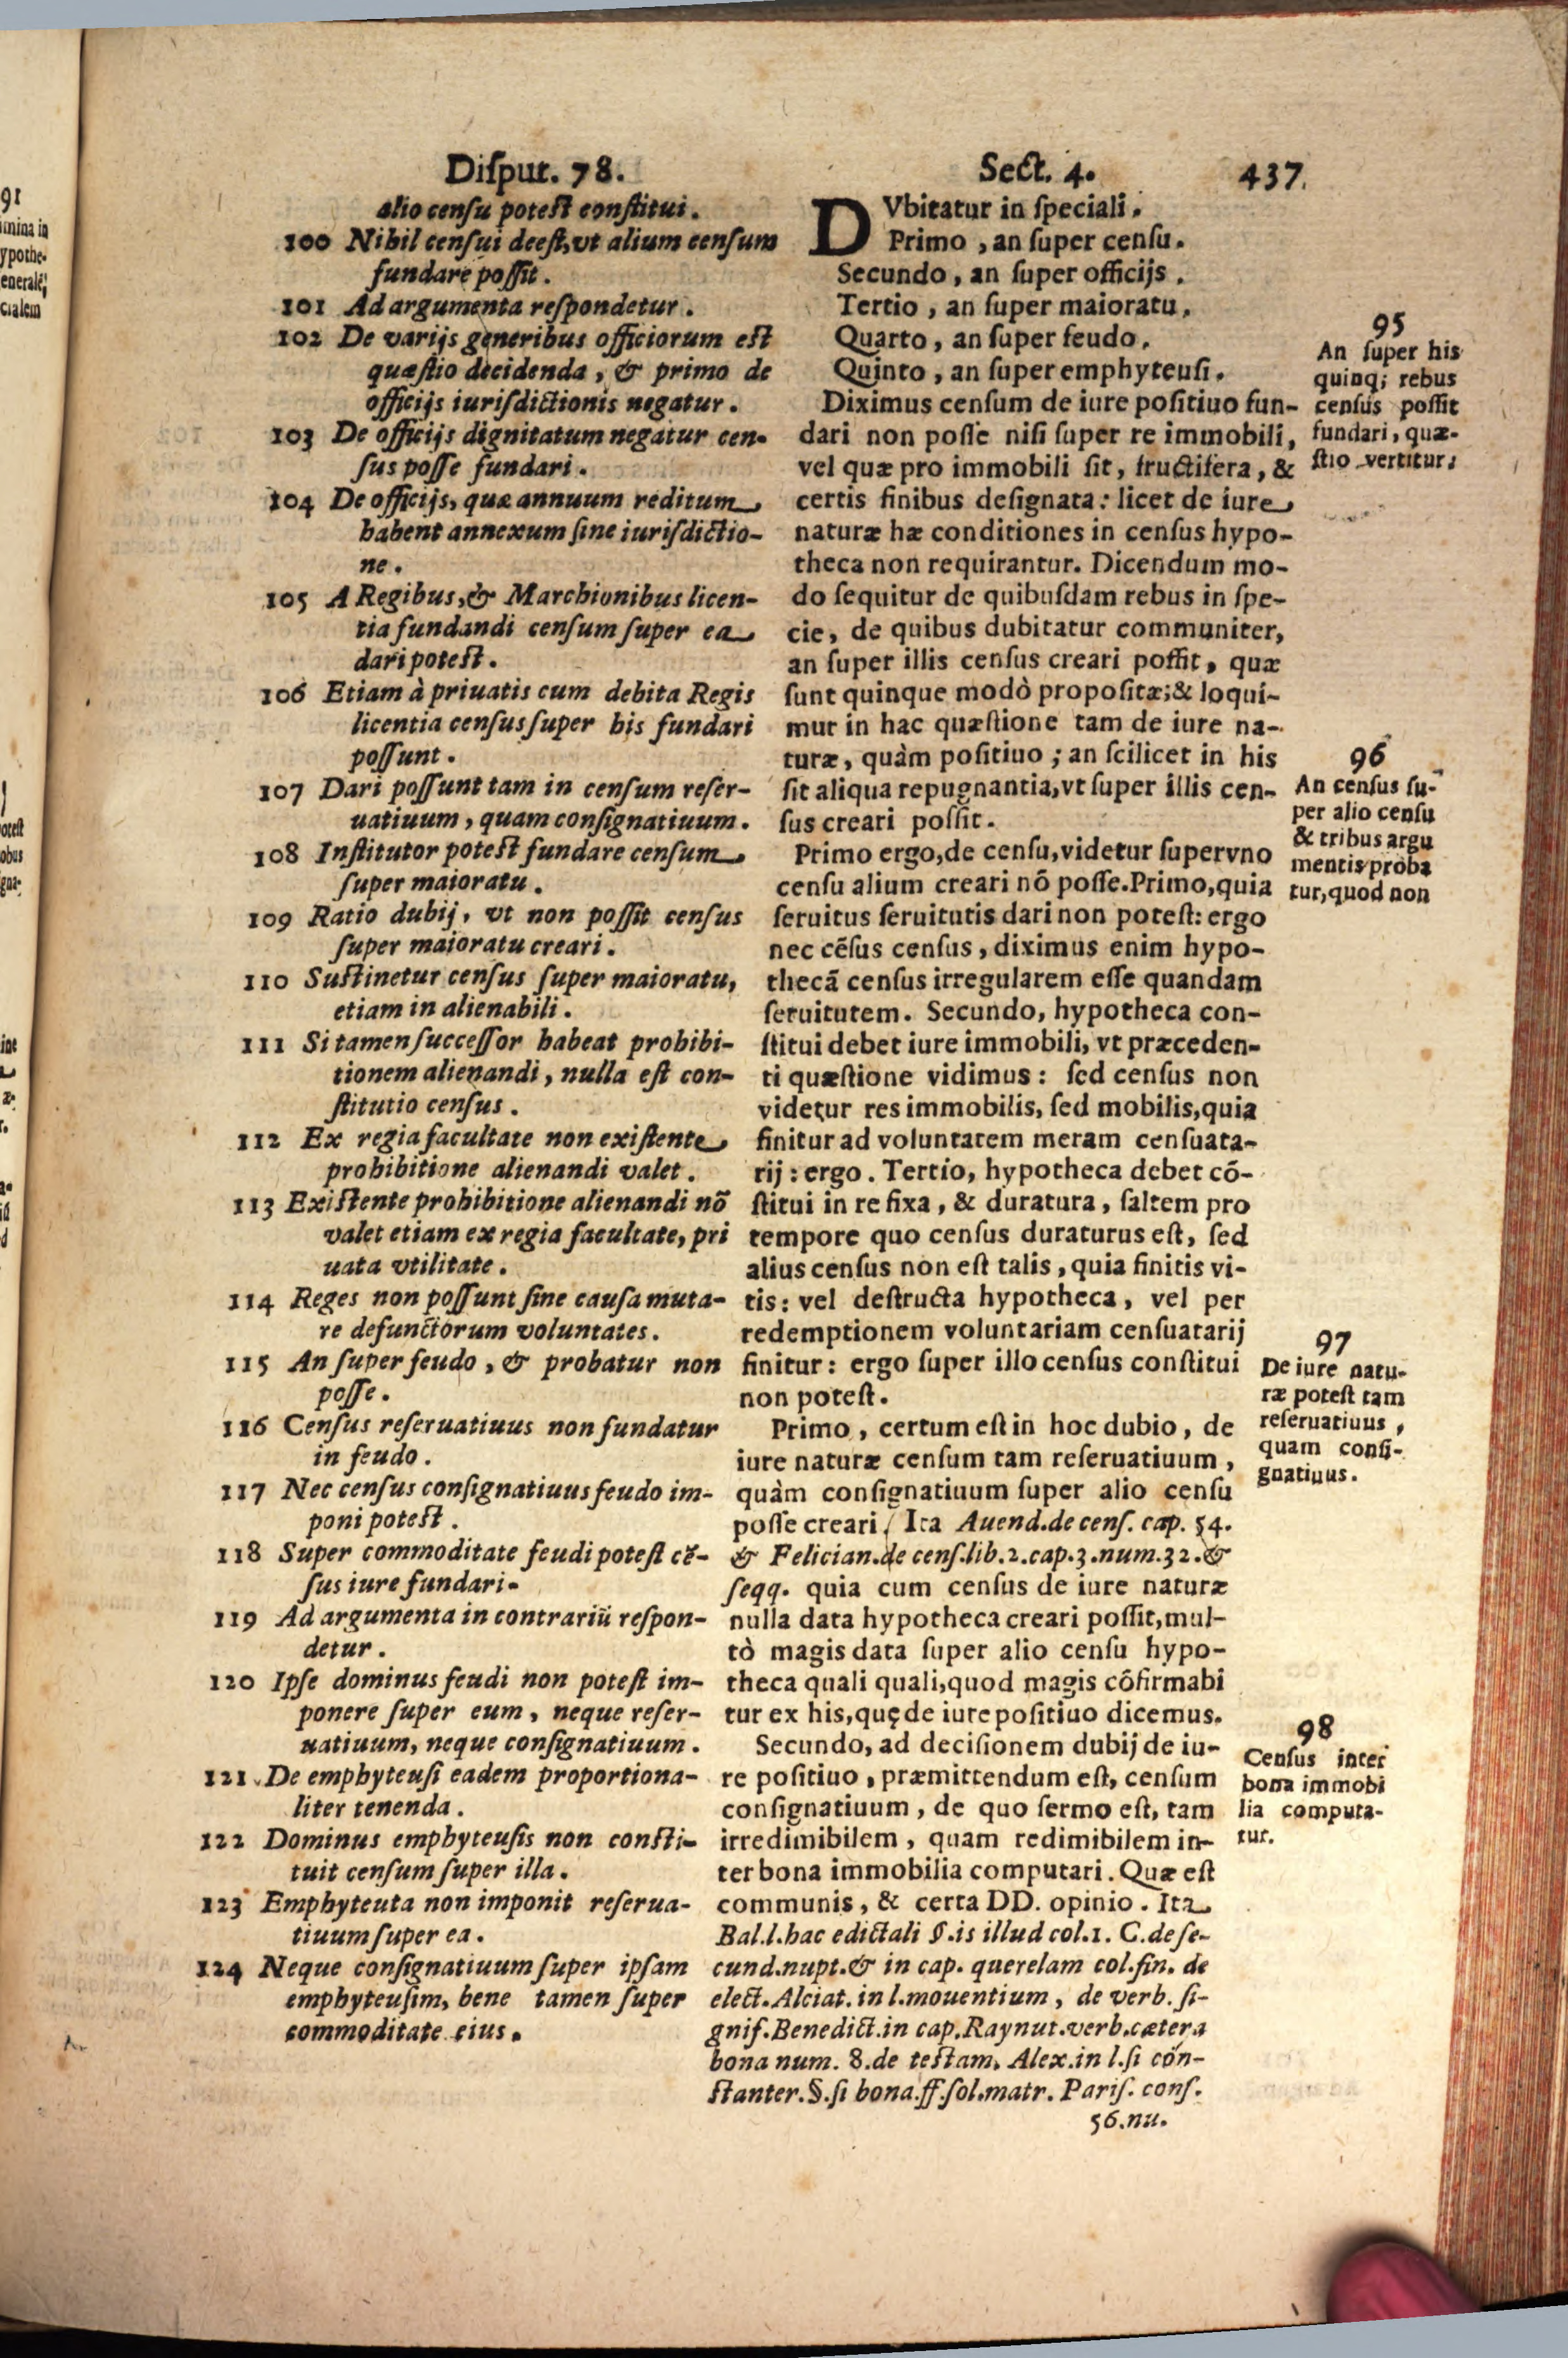 Diſput. 78.
Sect. 4.
437.
alio cenſu poteſt conſtitui.
100 Nihil cenſui deeſt, vt alium cenſum
fundare poſſit.
101 Ad argumenta reſpondetur.
102 De varijs generibus officiorum eſt
quæſtio decidenda, & primo de
officijs iuriſdictionis negatur.
103 De officijs dignitatum negatur cen-
ſus poſſe fundari.
104 De officijs, quæ annuum reditum
habent annexum ſine iuriſdictio-
ne.
105 A Regibus, & Marchionibus licen-
tia fundandi cenſum ſuper ea
dari poteſt.
106 Etiam à priuatis cum debita Regis
licentia cenſus ſuper his fundari
poſſunt.
107 Dari poſſunt tam in cenſum reſer-
uatiuum, quam conſignatiuum.
108 Inſtitutor poteſt fundare cenſum
ſuper maioratu.
109 Ratio dubij, vt non poſſit cenſus
ſuper maioratu creari.
110 Suſtinetur cenſus ſuper maioratu,
etiam in alienabili.
111 Si tamen ſucceſſor habeat prohibi-
tionem alienandi, nulla eſt con-
ſtitutio cenſus.
112 Ex regia facultate non exiſtente
prohibitione alienandi valet.
113 Exiſtente prohibitione alienandi nõ
valet etiam ex regia facultate, pri
uata vtilitate.
114 Reges non poſſunt ſine cauſa muta-
re defunctorum voluntates.
115 An ſuper feudo, & probatur non
poſſe.
116 Cenſus reſeruatiuus non fundatur
in feudo.
117 Nec cenſus conſignatiuus feudo im-
poni poteſt.
118 Super commoditate feudi poteſt cẽ-
ſus iure fundari.
119 Ad argumenta in contrariũ reſpon-
detur.
120 Ipſe dominus feudi non poteſt im-
ponere ſuper eum, neque reſer-
uatiuum, neque conſignatiuum.
121 De emphyteuſi eadem proportiona-
liter tenenda.
122 Dominus emphyteuſis non conſti-
tuit cenſum ſuper illa.
123 Emphyteuta non imponit reſerua-
tiuum ſuper ea.
124 Neque conſignatiuum ſuper ipſam
emphyteuſim, bene tamen ſuper
commoditate eius.
DVbitatur in ſpeciali.
Primo, an ſuper cenſu.
Secundo, an ſuper officijs.
Tertio, an ſuper maioratu.
Quarto, an ſuper feudo.
Quinto, an ſuper emphyteuſi.
Diximus cenſum de iure poſitiuo fun-
dari non poſſe niſi ſuper re immobili,
vel quæ pro immobili ſit, fructifera, &
certis finibus deſignata: licet de iure
naturæ hæ conditiones in cenſus hypo-
theca non requirantur. Dicendum mo-
do ſequitur de quibuſdam rebus in ſpe-
cie, de quibus dubitatur communiter,
an ſuper illis cenſus creari poſſit, quæ
ſunt quinque modò propoſitæ; & loqui-
mur in hac quæſtione tam de iure na-
turæ, quàm poſitiuo; an ſcilicet in his
ſit aliqua repugnantia, vt ſuper illis cen-
ſus creari poſſit.
Primo ergo, de cenſu, videtur ſuper vno
cenſu alium creari nõ poſſe. Primo, quia
ſeruitus ſeruitutis dari non poteſt: ergo
nec cẽſus cenſus, diximus enim hypo-
thecã cenſus irregularem eſſe quandam
ſeruitutem. Secundo, hypotheca con-
ſtitui debet iure immobili, vt præceden-
ti quæſtione vidimus: ſed cenſus non
videtur res immobilis, ſed mobilis, quia
finitur ad voluntatem meram cenſuata-
rij: ergo. Tertio, hypotheca debet cõ-
ſtitui in re fixa, & duratura, ſaltem pro
tempore quo cenſus duraturus eſt, ſed
alius cenſus non eſt talis, quia finitis vi-
tis: vel deſtructa hypotheca, vel per
redemptionem voluntariam cenſuatarij
finitur: ergo ſuper illo cenſus conſtitui
non poteſt.
Primo, certum eſt in hoc dubio, de
iure naturæ cenſum tam reſeruatiuum,
quàm conſignatiuum ſuper alio cenſu
poſſe creari. Ita Auend. de cenſ. cap. 54.
& Felician. de cenſ. lib. 2. cap. 3. num. 32. &
ſeqq. quia cum cenſus de iure naturæ
nulla data hypotheca creari poſſit, mul-
tò magis data ſuper alio cenſu hypo-
theca quali quali, quod magis cõfirmabi
tur ex his, quę de iure poſitiuo dicemus.
Secundo, ad deciſionem dubij de iu-
re poſitiuo, præmittendum eſt, cenſum
conſignatiuum, de quo ſermo eſt, tam
irredimibilem, quam redimibilem in-
ter bona immobilia computari. Quæ eſt
communis, & certa DD. opinio. Ita
Bal. l. hac edictali §. is illud col. 1. C. de ſe-
cund. nupt. & in cap. querelam col. fin. de
elect. Alciat. in l. mouentium, de verb. ſi-
gnif. Benedict. in cap. Raynut. verb. cætera
bona num. 8. de teſtam. Alex. in l. ſi con-
ſtanter. §. ſi bona. ff. ſol. matr. Pariſ. conſ.
56. nu.
95
An ſuper his
quinq; rebus
cenſus poſſit
fundari, quæ-
ſtio vertitur.
96
An cenſus ſu-
per alio cenſu
& tribus argu
mentis proba
tur, quod non
97
De iure natu-
ræ poteſt tam
reſeruatiuus,
quam conſi-
gnatiuus.
98
Cenſus inter
bona immobi
lia computa-
tur.